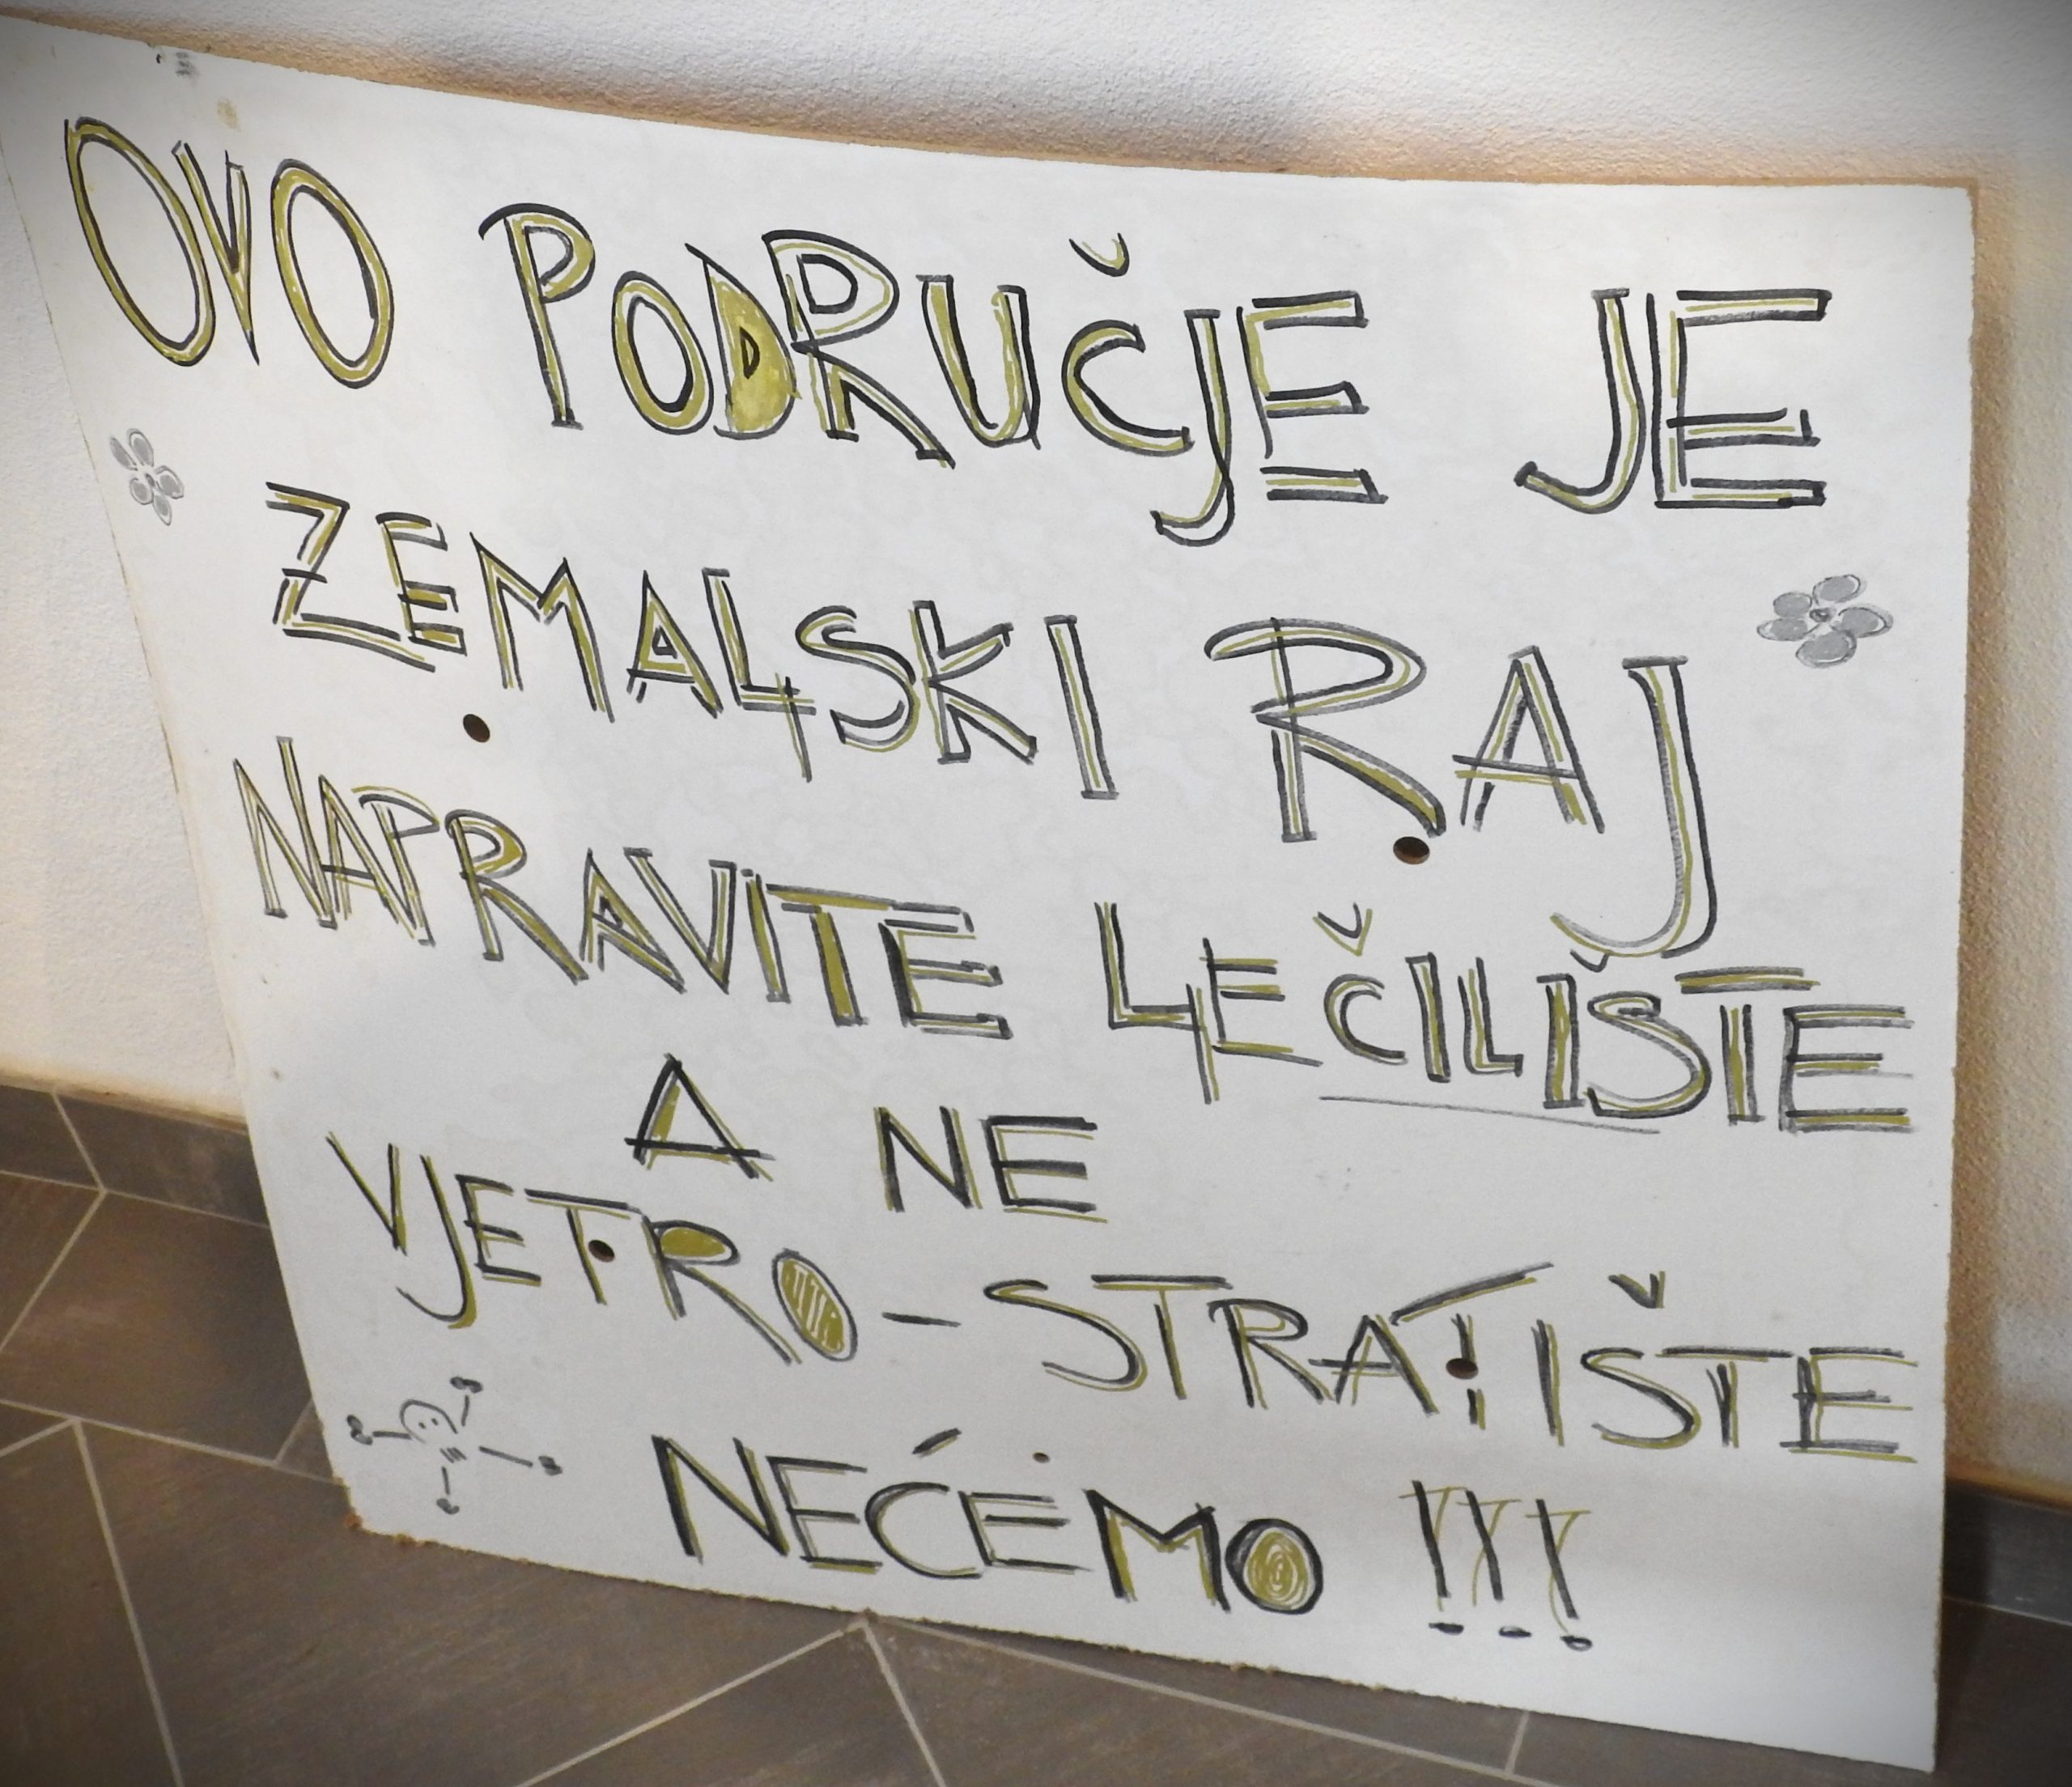 OVO PODRUČJE JE
ZEMALSKI RAJ
NAPRAVITE LEČILIŠTE
A NE
VJETRO-STRATIŠTE
NEĆEMO !!!